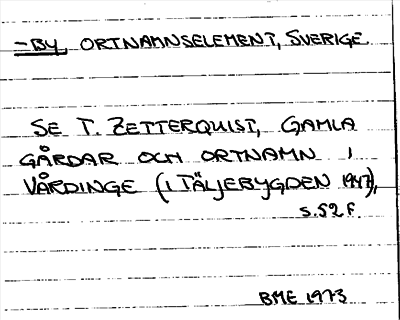 -BY, ORTNAMNSELEMENT, SVERIGE
SE T. ZETTERQUIST, GAMLA
GÅRDAR OCH ORTNAMN I
VÅRDINGE (I TÄLJEBYGDEN 1947),
s. 52 f.
BME 1973